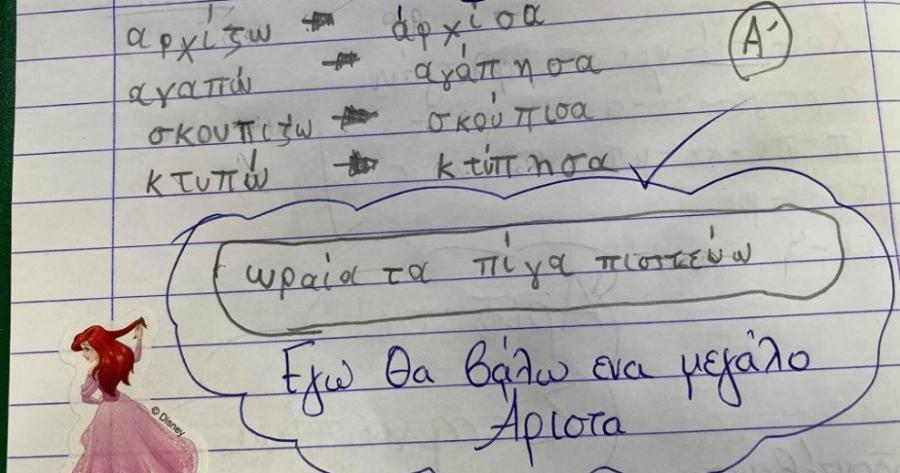 αρχίζω άρχισα
αγαπώ αγάπησα
σκουπίζω σκούπισα
κτυπώ κτύπησα
Α'
ωραία τα πίγα πιστεύω
Εγώ θα βάλω ενα μεγάλο
Άριστα
© Disney